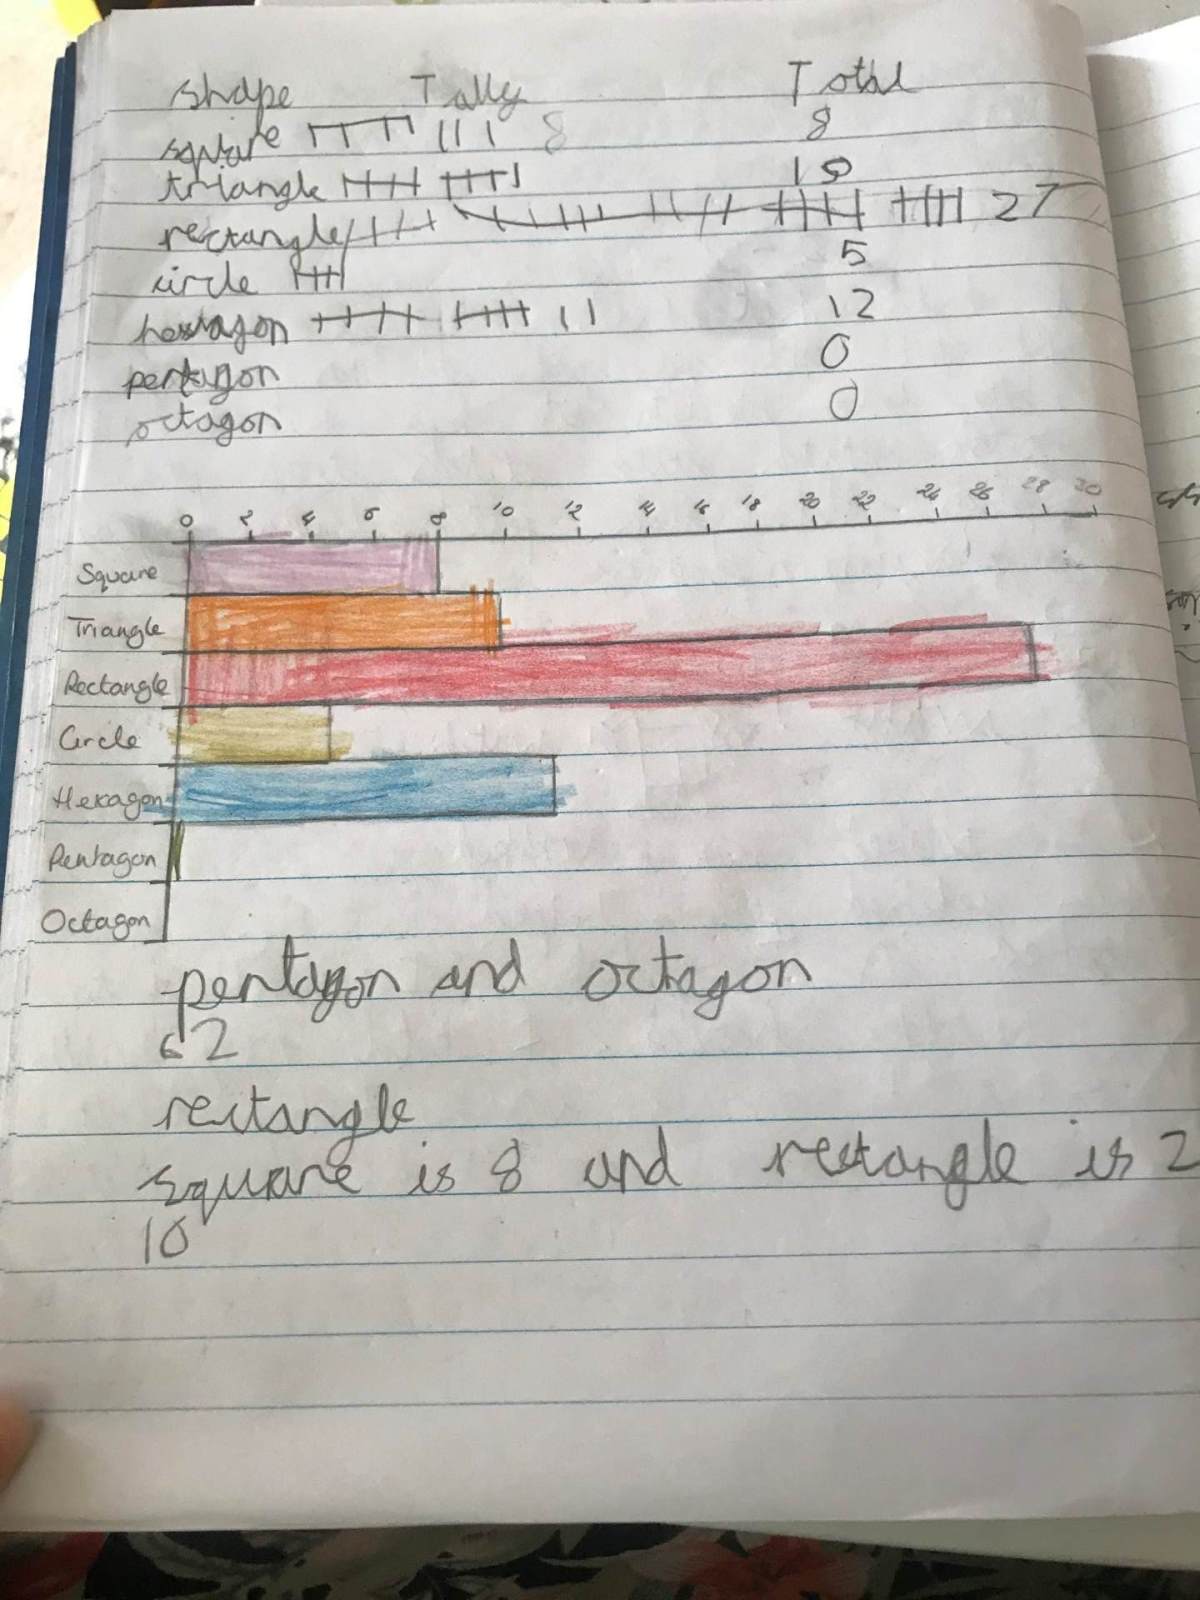 shape Tally Total
square 8 8
triangle 10
rectangle 27
circle 5
hexagon 12
pentagon 0
octagon 0
0 2 4 6 8 10 12 14 16 18 20 22 24 26 28 30
Square
Triangle
Rectangle
Circle
Hexagon
Pentagon
Octagon
pentagon and octagon
62
rectangle
square is 8 and rectangle is 2
10